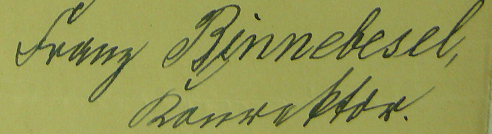 Franz Binnebesel,
Konrektor.